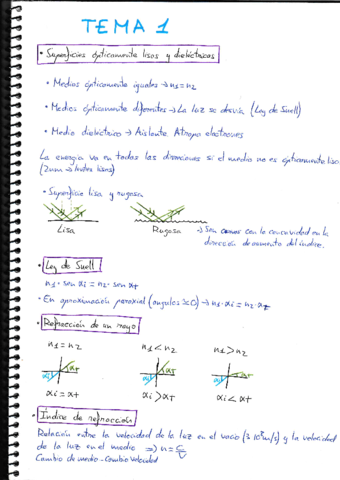 TEMA 1
• Superficies ópticamente lisas y dieléctricas
• Medios ópticamente iguales → n1 = n2
• Medios ópticamente diferentes → La luz se desvía (Ley de Snell)
• Medio dieléctrico → Aislante Atrapa electrones
La energía va en todas las direcciones si el medio no es ópticamente liso
• Superficie lisa y rugosa
Lisa
Rugosa
→ Son conos con la concavidad en la
dirección de aumento del índice.
• Ley de Snell
n1 · sen αi = n2 · sen αT
• En aproximación paraxial (ángulos ≈ 0) → n1 · αi = n2 · αT
• Refracción de un rayo
n1 = n2
n1 < n2
n1 > n2
αi αT
αi αT
αi αT
αi = αT
αi > αT
αi < αT
• Índice de refracción
Relación entre la velocidad de la luz en el vacío (3·10⁸ m/s) y la velocidad
de la luz en el medio ⇒ n = c/v
Cambio de medio - Cambio velocidad